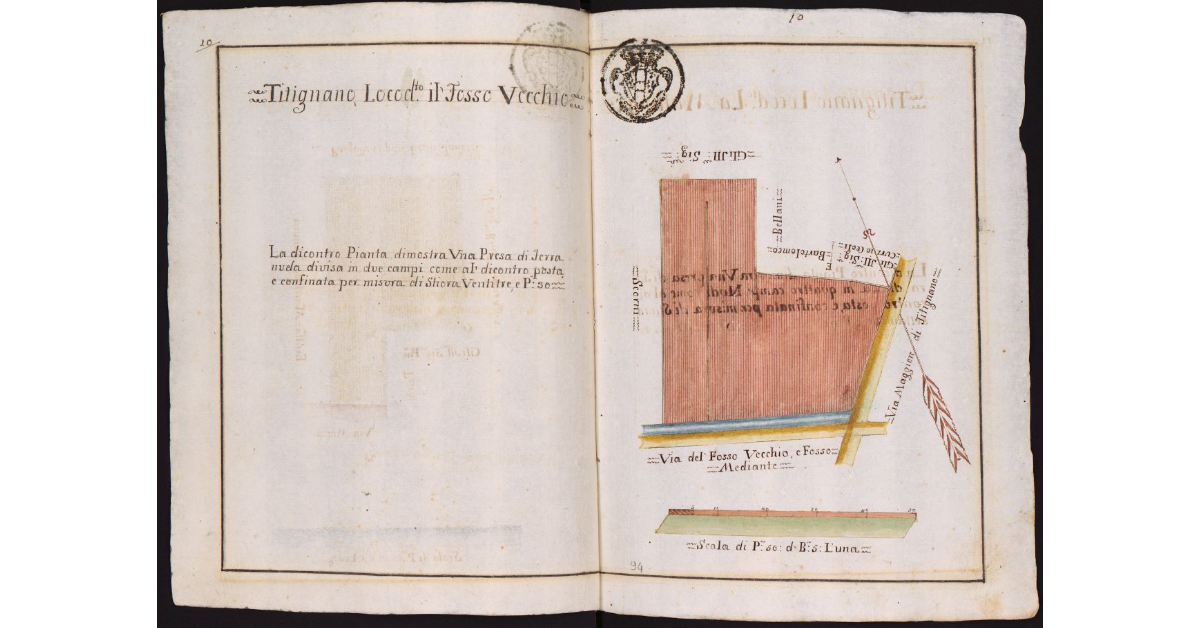 10
Titignano, Locod.tto il Fosso Vecchio
La dicontro Pianta dimostra Vna Presa di Terra
nuda divisa in due campi come al' dicontro posta,
e confinata per misura di Stiora Ventitre, e P.e 50
10
Gli Ill.mi Sig.ri
Bellani
Bartolomeo
E
Gli Ill.i Sig.
Scorni
Via Maggior di Titignano
Via del Fosso Vecchio, e Fosso
Mediante
Scala di P.e 50: di B.a 5: L'una
94